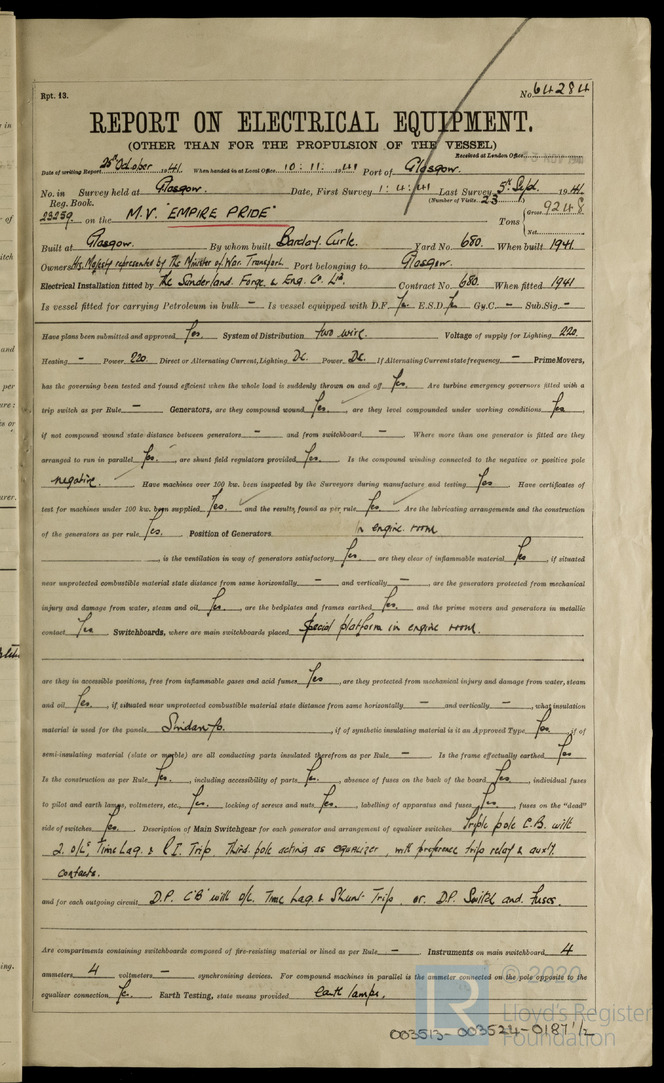 Rpt. 13.
No. 64284
REPORT ON ELECTRICAL EQUIPMENT.
(OTHER THAN FOR THE PROPULSION OF THE VESSEL)
Received at London Office
Date of writing Report 25th October 1941 When handed in at Local Office 10.11.1941 Port of Glasgow.
No. in Survey held at Glasgow. Date, First Survey 1.4.41 Last Survey 5th Sept. 1941
Reg. Book. (Number of Visits 23)
23259 on the M.V. "EMPIRE PRIDE" Tons Gross 9248
Net
Built at Glasgow. By whom built Barclay. Curle. Yard No. 680. When built 1941.
Owners His Majesty represented by The Minister of War Transport. Port belonging to Glasgow.
Electrical Installation fitted by The Sunderland. Forge. & Eng. Co. Ltd. Contract No. 680. When fitted 1941
Is vessel fitted for carrying Petroleum in bulk - Is vessel equipped with D.F. Yes. E.S.D. Yes Gy.C - Sub.Sig. -
Have plans been submitted and approved Yes. System of Distribution two wire. Voltage of supply for Lighting 220.
Heating - Power 220. Direct or Alternating Current, Lighting Dc. Power Dc. If Alternating Current state frequency - Prime Movers,
has the governing been tested and found efficient when the whole load is suddenly thrown on and off Yes. Are turbine emergency governors fitted with a
trip switch as per Rule - Generators, are they compound wound Yes. are they level compounded under working conditions Yes.
if not compound wound state distance between generators - and from switchboard - Where more than one generator is fitted are they
arranged to run in parallel Yes. are shunt field regulators provided Yes. Is the compound winding connected to the negative or positive pole
negative. Have machines over 100 kw. been inspected by the Surveyors during manufacture and testing Yes. Have certificates of
test for machines under 100 kw. been supplied Yes. and the results found as per rule Yes. Are the lubricating arrangements and the construction
of the generators as per rule Yes. Position of Generators in engine room
, is the ventilation in way of generators satisfactory Yes. are they clear of inflammable material Yes, if situated
near unprotected combustible material state distance from same horizontally - and vertically -, are the generators protected from mechanical
injury and damage from water, steam and oil Yes., are the bedplates and frames earthed Yes. and the prime movers and generators in metallic
contact Yes Switchboards, where are main switchboards placed Special platform in engine room.
are they in accessible positions, free from inflammable gases and acid fumes Yes, are they protected from mechanical injury and damage from water, steam
and oil Yes., if situated near unprotected combustible material state distance from same horizontally - and vertically -, what insulation
material is used for the panels Sindanyo., if of synthetic insulating material is it an Approved Type Yes. if of
semi-insulating material (slate or marble) are all conducting parts insulated therefrom as per Rule - Is the frame effectually earthed Yes
Is the construction as per Rule Yes., including accessibility of parts Yes., absence of fuses on the back of the board Yes., individual fuses
to pilot and earth lamps, voltmeters, etc. Yes. locking of screws and nuts Yes., labelling of apparatus and fuses Yes., fuses on the "dead"
side of switches Yes. Description of Main Switchgear for each generator and arrangement of equaliser switches Triple pole C.B. with
2. o/Ls, Time Lag. & R.I. Trip. Third pole acting as equalizer, with preference trip relay & aux'y.
contacts.
and for each outgoing circuit D.P. C'B' with o/L. Time Lag. & Shunt Trip or D.P. Switch and Fuses.
Are compartments containing switchboards composed of fire-resisting material or lined as per Rule - Instruments on main switchboard 4
ammeters 4 voltmeters - synchronising devices. For compound machines in parallel is the ammeter connected on the pole opposite to the
equaliser connection Yes. Earth Testing, state means provided earth lamps.
© 2020
Lloyd's Register
Foundation
003513-003524-0187 1/2